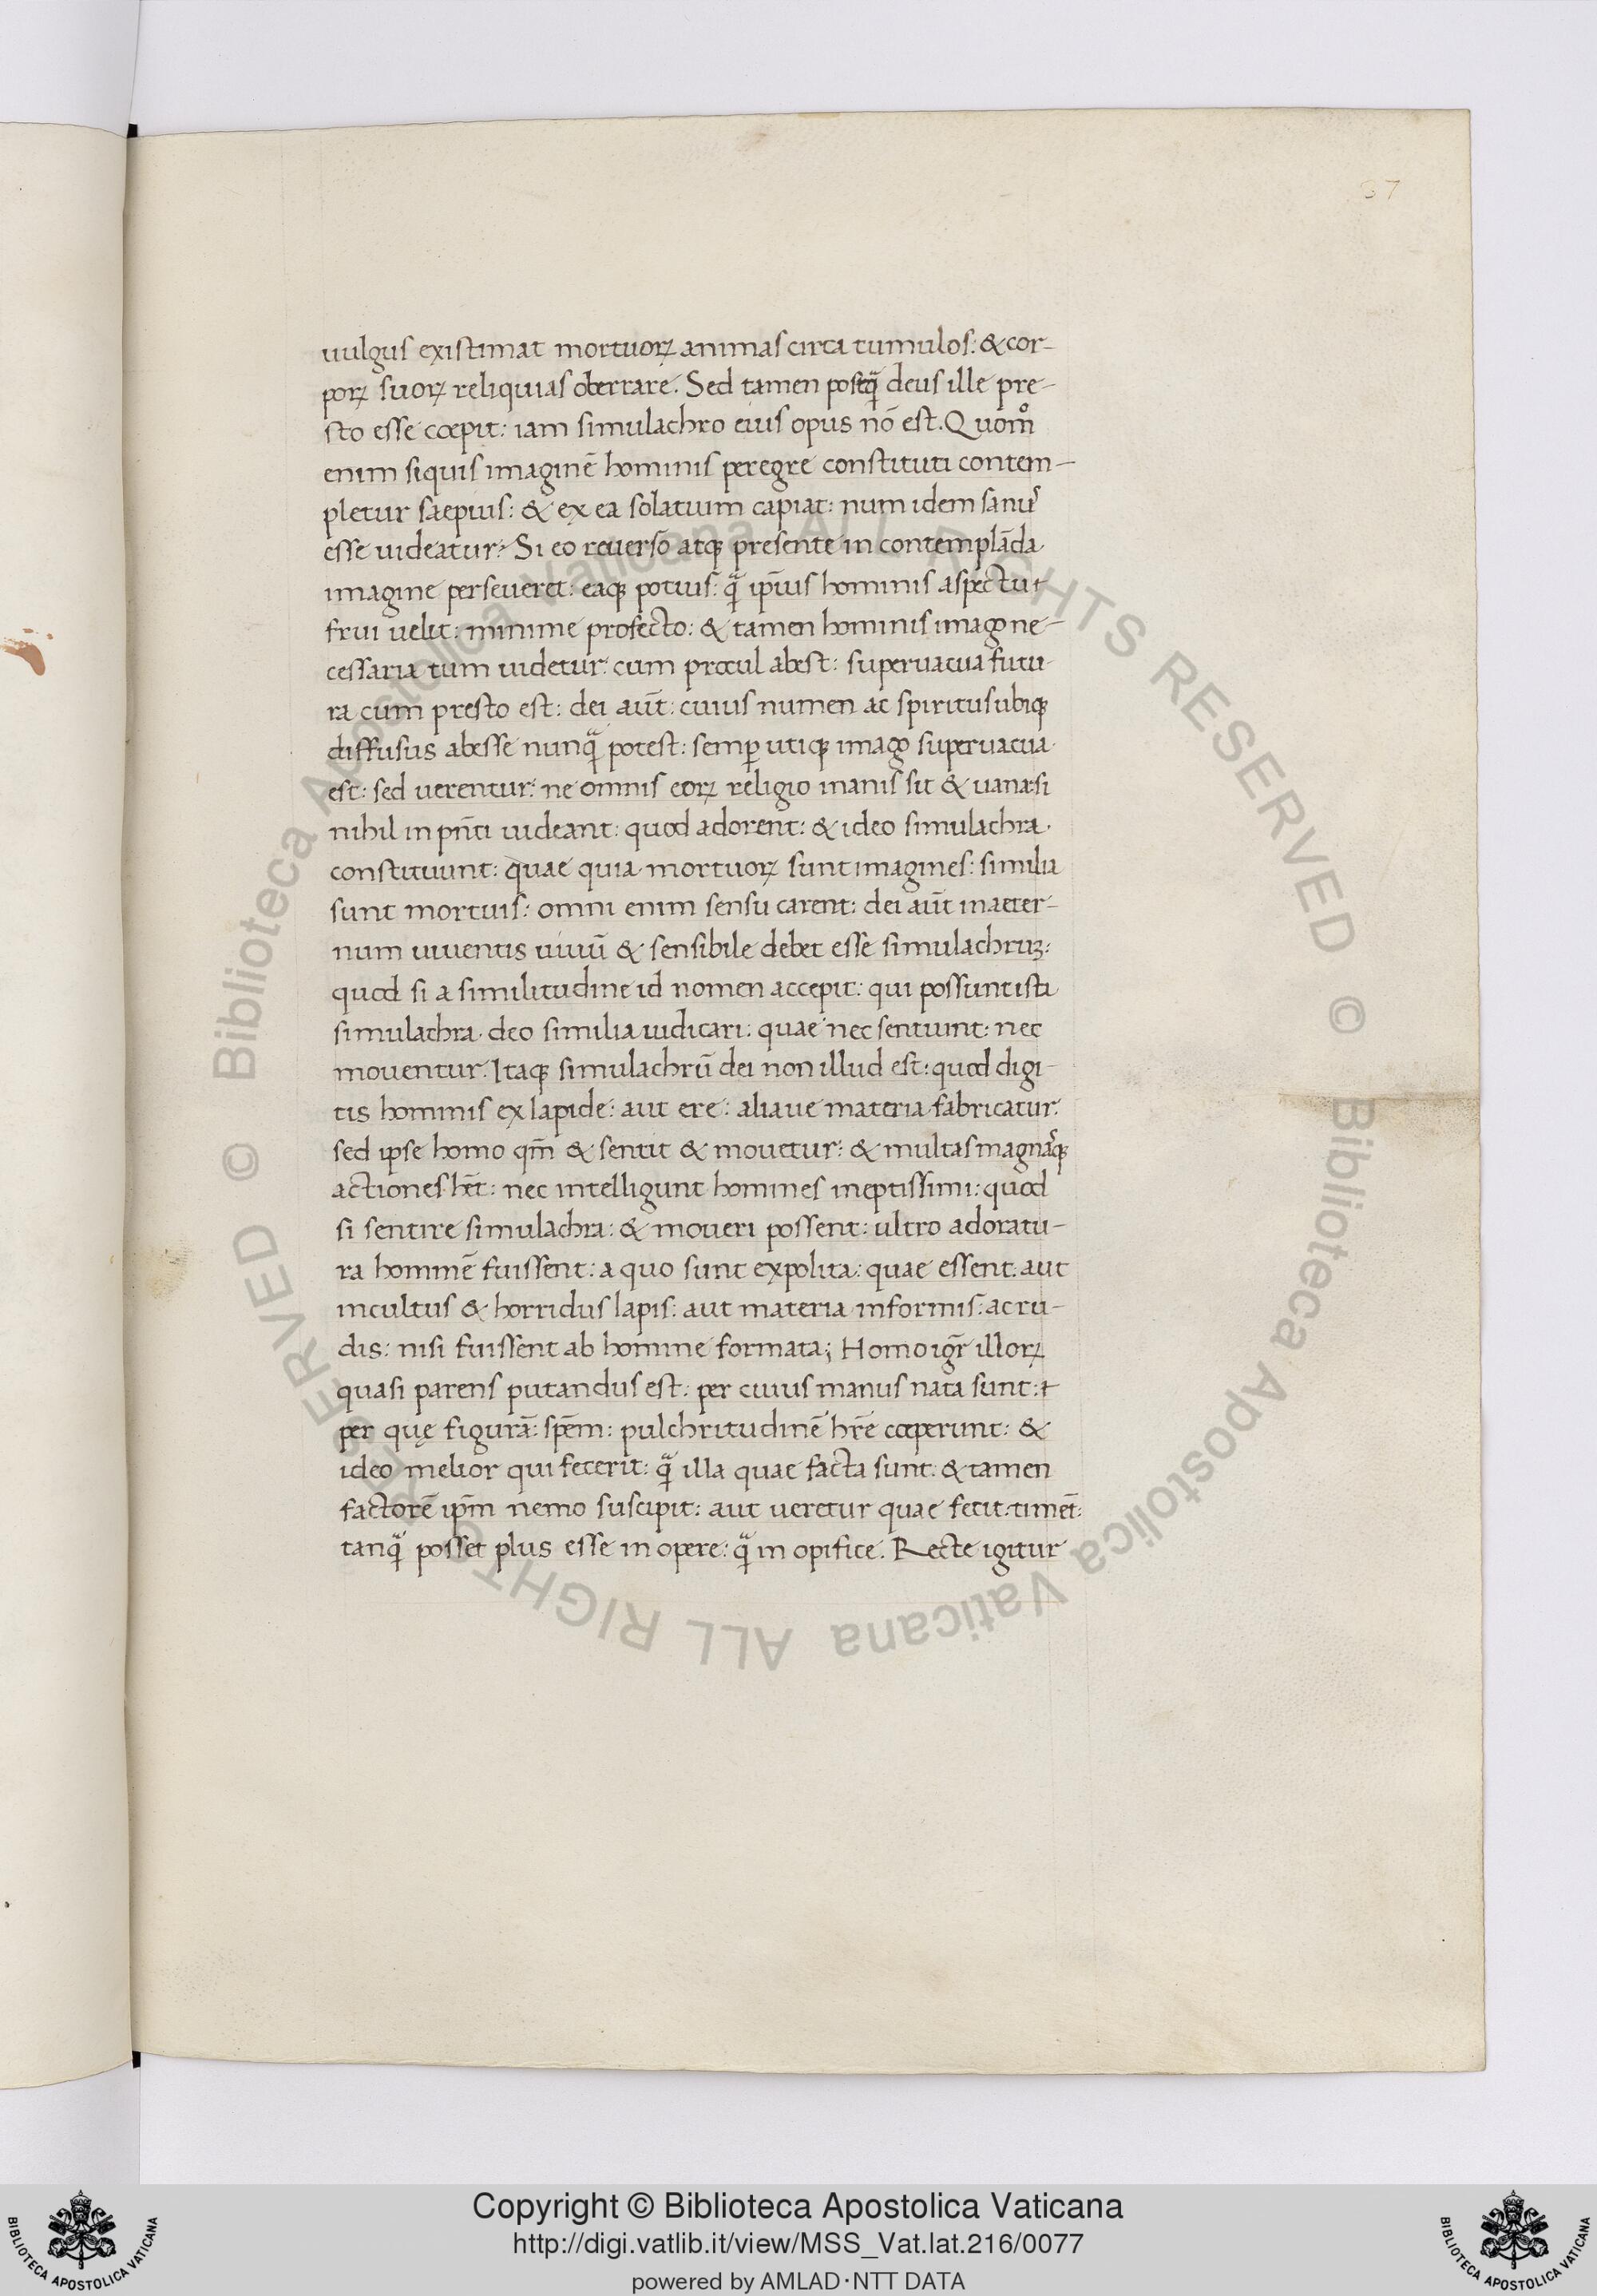 67
uulgus existimat mortuoꝝ animas circa tumulos: & cor-
poꝝ suoꝝ reliquias oberrare. Sed tamen posteꝗ̃ deus ille pre-
sto esse cœpit: iam simulachro eius opus nō est. Quom̊
enim siquis imaginē hominis peregre constituti contem-
pletur saepius: & ex ea solatium capiat: num idem sanus
esse uideatur? Si eo reuerso atqꝫ presente in contemplāda
imagine perseueret: eaqꝫ potius: ꝗ̃ ip̄ius hominis aspectu ⁊
frui uelit: minime profecto: & tamen hominis imago ne-
cessaria tum uidetur: cum procul abest: superuacua futu-
ra cum presto est: dei aūt: cuius numen ac spiritus ubiqꝫ
diffusus abesse nunꝗ̃ potest: semꝑ utiqꝫ imago superuacua
est: sed uerentur: ne omnis eoꝝ religio inanis sit & uana: si
nihil in pn̄ti uideant: quod adorent: & ideo simulachra
constituunt: quae quia mortuoꝝ sunt imagines: similia
sunt mortuis: omni enim sensu carent: dei aūt in aeter-
num uiuentis uiuū & sensibile debet esse simulachruꝫ:
quod si a similitudine id nomen accepit: qui possunt ista
simulachra deo similia iudicari: quae nec sentiunt: nec
mouentur. Itaqꝫ simulachrū dei non illud est: quod digi-
tis hominis ex lapide: aut ere: aliaue materia fabricatur:
sed ipse homo qm̄ & sentit & mouetur: & multas magnasqꝫ
actiones hēt: nec intelligunt homines ineptissimi: quod
si sentire simulachra: & moueri possent: ultro adoratu-
ra hominē fuissent: a quo sunt expolita: quae essent aut
incultus & horridus lapis: aut materia informis: ac ru-
dis: nisi fuissent ab homine formata; Homo igr̄ illoꝝ
quasi parens putandus est: per cuius manus nata sunt: ⁊
per quę figurā: spēm: pulchritudinē hr̄e cœperunt: &
ideo melior qui fecerit: ꝗ̃ illa quae facta sunt: & tamen
factorē ip̄m nemo suscipit: aut ueretur quae fecit: timet:
tanꝗ̃ posset plus esse in opere: ꝗ̃ in opifice. Recte igitur
© Biblioteca Apostolica Vaticana ALL RIGHTS RESERVED © Biblioteca Apostolica Vaticana ALL RIGHTS RESERVED
Copyright © Biblioteca Apostolica Vaticana
http://digi.vatlib.it/view/MSS_Vat.lat.216/0077
powered by AMLAD·NTT DATA
BIBLIOTECA APOSTOLICA VATICANA
BIBLIOTECA APOSTOLICA VATICANA